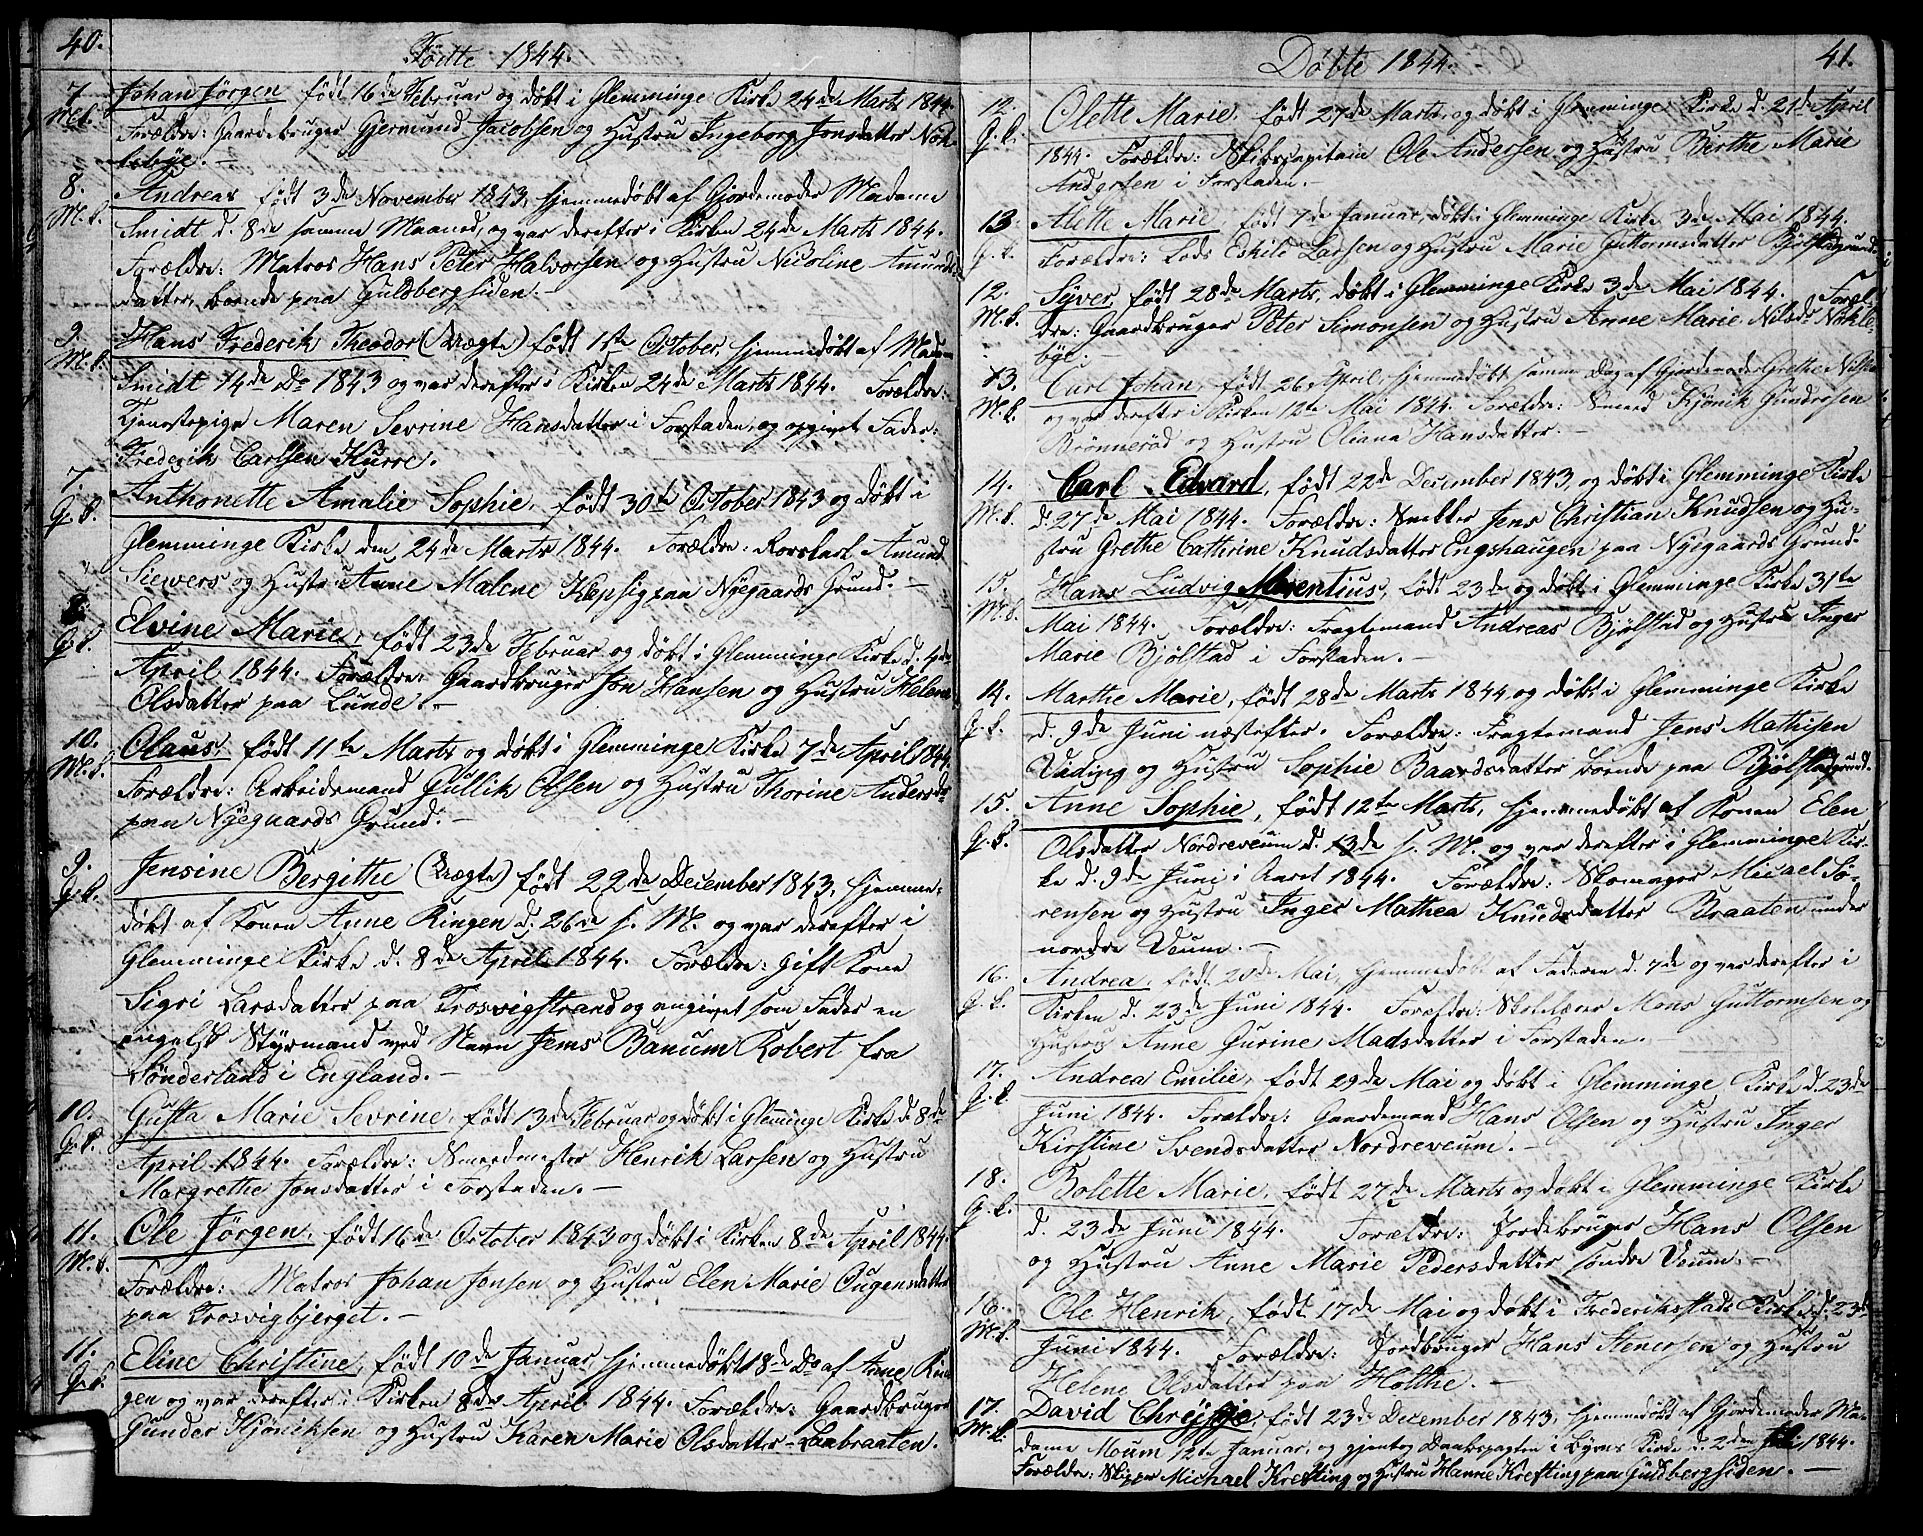 40.
Födte 1844.
7.
M.k.
Johan Jörgen født 16de Februar og døbt i Glemminge Kirke 24de Marts 1844.
Forældre: Gaardbruger Gjermund Jacobsen og Hustru Ingeborg Jonsdatter Nök-
lebye. —
8.
M.k.
Andreas født 3de November 1843, hjemmedøbt af Gjordemoder Madame
Smidt d. 8de samme Maaned, og var derefter i Kirken 24de Marts 1844.
Forældre: Matros Hans Peter Halvorsen og Hustru Nicoline Amunds-
datter, boende paa Guldbergsiden. —
9.
M.k.
Hans Frederik Theodor (Uægte) født 1ste October, hjemmedøbt af Madam
Smidt 14de Do 1843 og var derefter i Kirken 24de Marts 1844. Forældre:
Tjenestepige Maren Sevrine Hansdatter i Forstaden, og opgivet Fader:
Frederik Carlsen Hurre.
7.
G.k.
Anthonette Amalie Sophie, født 30te October 1843 og døbt i
Glemminge Kirke den 24de Marts 1844. Forældre: Amund
Siewers og Hustru Anne Malene Klepsig paa Nyegaards Grund. —
8.
G.k.
Elvine Marie, født 23de Februar og døbt i Glemminge Kirke d.
April 1844. Forældre: Gaardbruger Jon Hansen og Hustru Helene
Olsdatter paa Lunde. —
10.
M.k.
Olaus, født 11te Marts og døbt i Glemminge Kirke 7de April 1844.
Forældre: Arbeidsmand Gullik Olsen og Hustru Thorine Andersd:
paa Nyegaards Grund. —
9.
G.k.
Jensine Bergithe (Uægte) født 22de December 1843, hjemme-
døbt af Konen Anne Ringen d. 26de s. M. og var derefter i
Glemminge Kirke d. 8de April 1844. Forældre: gift Kone
Sigri Larsdatter paa Trosvigstrand og angivet som Fader en
engelsk Styrmand ved Navn Jems Banum Robert fra
Sönderland i England. —
10.
G.k.
Gusta Marie Sevrine, født 13de Februar og døbt i Glemminge Kirke d. 8de
April 1844. Forældre: Smedmester Henrik Larsen og Hustru
Margrethe Jonsdatter i Forstaden. —
11.
M.k.
Ole Jörgen, født 16de October 1843 og døbt i Kirken 8de April 1844.
Forældre: Matros Johan Jonsen og Hustru Elen Marie Ougensdatter
paa Trosvigbjerget. —
11.
G.k.
Eline Christine, født 10de Januar, hjemmedøbt 18de Do af Anne Rin-
gen og var derefter i Kirken 8de April 1844. Forældre: Gaardbruger
Gunder Kjöniksen og Hustru Karen Marie Olsdatter Laabraaten.
41.
Döbte 1844.
12.
G.k.
Olette Marie, født 27de Marts, og døbt i Glemminge Kirke d. 21de April
1844. Forældre: Skibscapitain Ole Andersen og Hustru Berthe Marie
Andersen i Forstaden. —
13.
G.k.
Alette Marie, født 7de Januar, døbt i Glemminge Kirke 3de Mai 1844.
Forældre: Lods Eskild Larsen og Hustru Marie Guttormsdatter Bjölstadgrund
12.
M.k.
Syver, født 28de Marts, døbt i Glemminge Kirke 3de Mai 1844. Foræl-
dre: Gaardbruger Peter Simonsen og Hustru Anne Marie Nilsd: Nökle-
bye. —
13.
M.k.
Carl Johan, født 26 April, hjemmedøbt samme Dag af Gjordemoder Grethe
og var derefter i Kirken 12te Mai 1844. Forældre: Smed Kjönik Gundersen
Brönneröd og Hustru Oliana Hansdatter. —
14.
M.k.
Carl Edvard, født 22de December 1843, og døbt i Glemminge Kirke
d. 27de Mai 1844. Forældre: Jens Christian Knudsen og Hu-
stru Grethe Cathrine Knudsdatter Engshaugen paa Nyegaards Grund.
15.
M.k.
Hans Ludvig Mventius, født 23de og døbt i Glemminge Kirke 31te
Mai 1844. Forældre: Fragtemand Andreas Bjölstad og Hustru Inger
Marie Bjölstad i Forstaden. —
14.
G.k.
Marthe Marie, født 28de Marts 1844 og døbt i Glemminge Kirke
d. 9de Juni næstefter. Forældre: Fragtemand Jens Mathisen
og Hustru Sophie Baardsdatter boende paa Bjölstadgrund.
15.
G.k.
Anne Sophie, født 12te Marts, hjemmedøbt af Konen Elen
Olsdatter Nordreveum d. 13de s. M. og var derefter i Glemminge Kir-
ke d. 9de Juni i Aaret 1844. Forældre: Skomager Micael Sö-
rensen og Hustru Inger Mathea Knudsdatter Braaten under
nordre Veum. —
16.
G.k.
Andrea, født 20de Mai, hjemmedøbt af Faderen d. 7de og var derefter i
Kirken d. 23de Juni 1844. Forældre: Skolelærer Mons Guttormsen og
Hustru Anne Gurine Madsdatter i Forstaden. —
17.
G.k.
Andrea Emilie, født 29de Mai og døbt i Glemminge Kirke d. 23de
Juni 1844. Forældre: Gaardmand Hans Olsen og Hustru Inger
Kirstine Svendsdatter Nordreveum. —
18.
G.k.
Bolette Marie, født 27de Marts og døbt i Glemminge Kirke
d. 23de Juni 1844. Forældre: Jordbruger Hans Olsen
og Hustru Anne Marie Pedersdatter søndre Veum. —
16.
M.k.
Ole Henrik, født 17de Mai og døbt i Frederikstads Kirke d. 23de
Juni 1844. Forældre: Jordbruger Hans Stenersen og Hustru
Helene Olsdatter paa Holthe. —
17.
M.k.
David, født 23de December 1843, hjemmedøbt af Gjordemoder Ma-
dame Moum 12te Januar, og gjentog Daabspagten i Byens Kirke d. 2den Juli 1844.
Forældre: Skipper Michael Krefting og Hustru Hanne Krefting paa Guldbergsiden. —